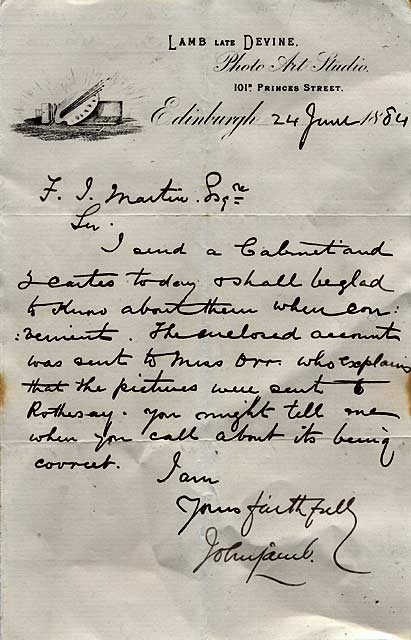 LAMB LATE DEVINE.
Photo Art Studio.
101A PRINCES STREET.
Edinburgh 24 June 1884
F. J. Martin Esqre
Sir.
I send a Cabinet and
2 cartes today & shall be glad
to know about them when con:
:venient. The enclosed account
was sent to Miss Orr. who explains
that the pictures were sent to
Rothesay. You might tell me
when you call about its being
correct.
I am
Yours faithfully
John Lamb.